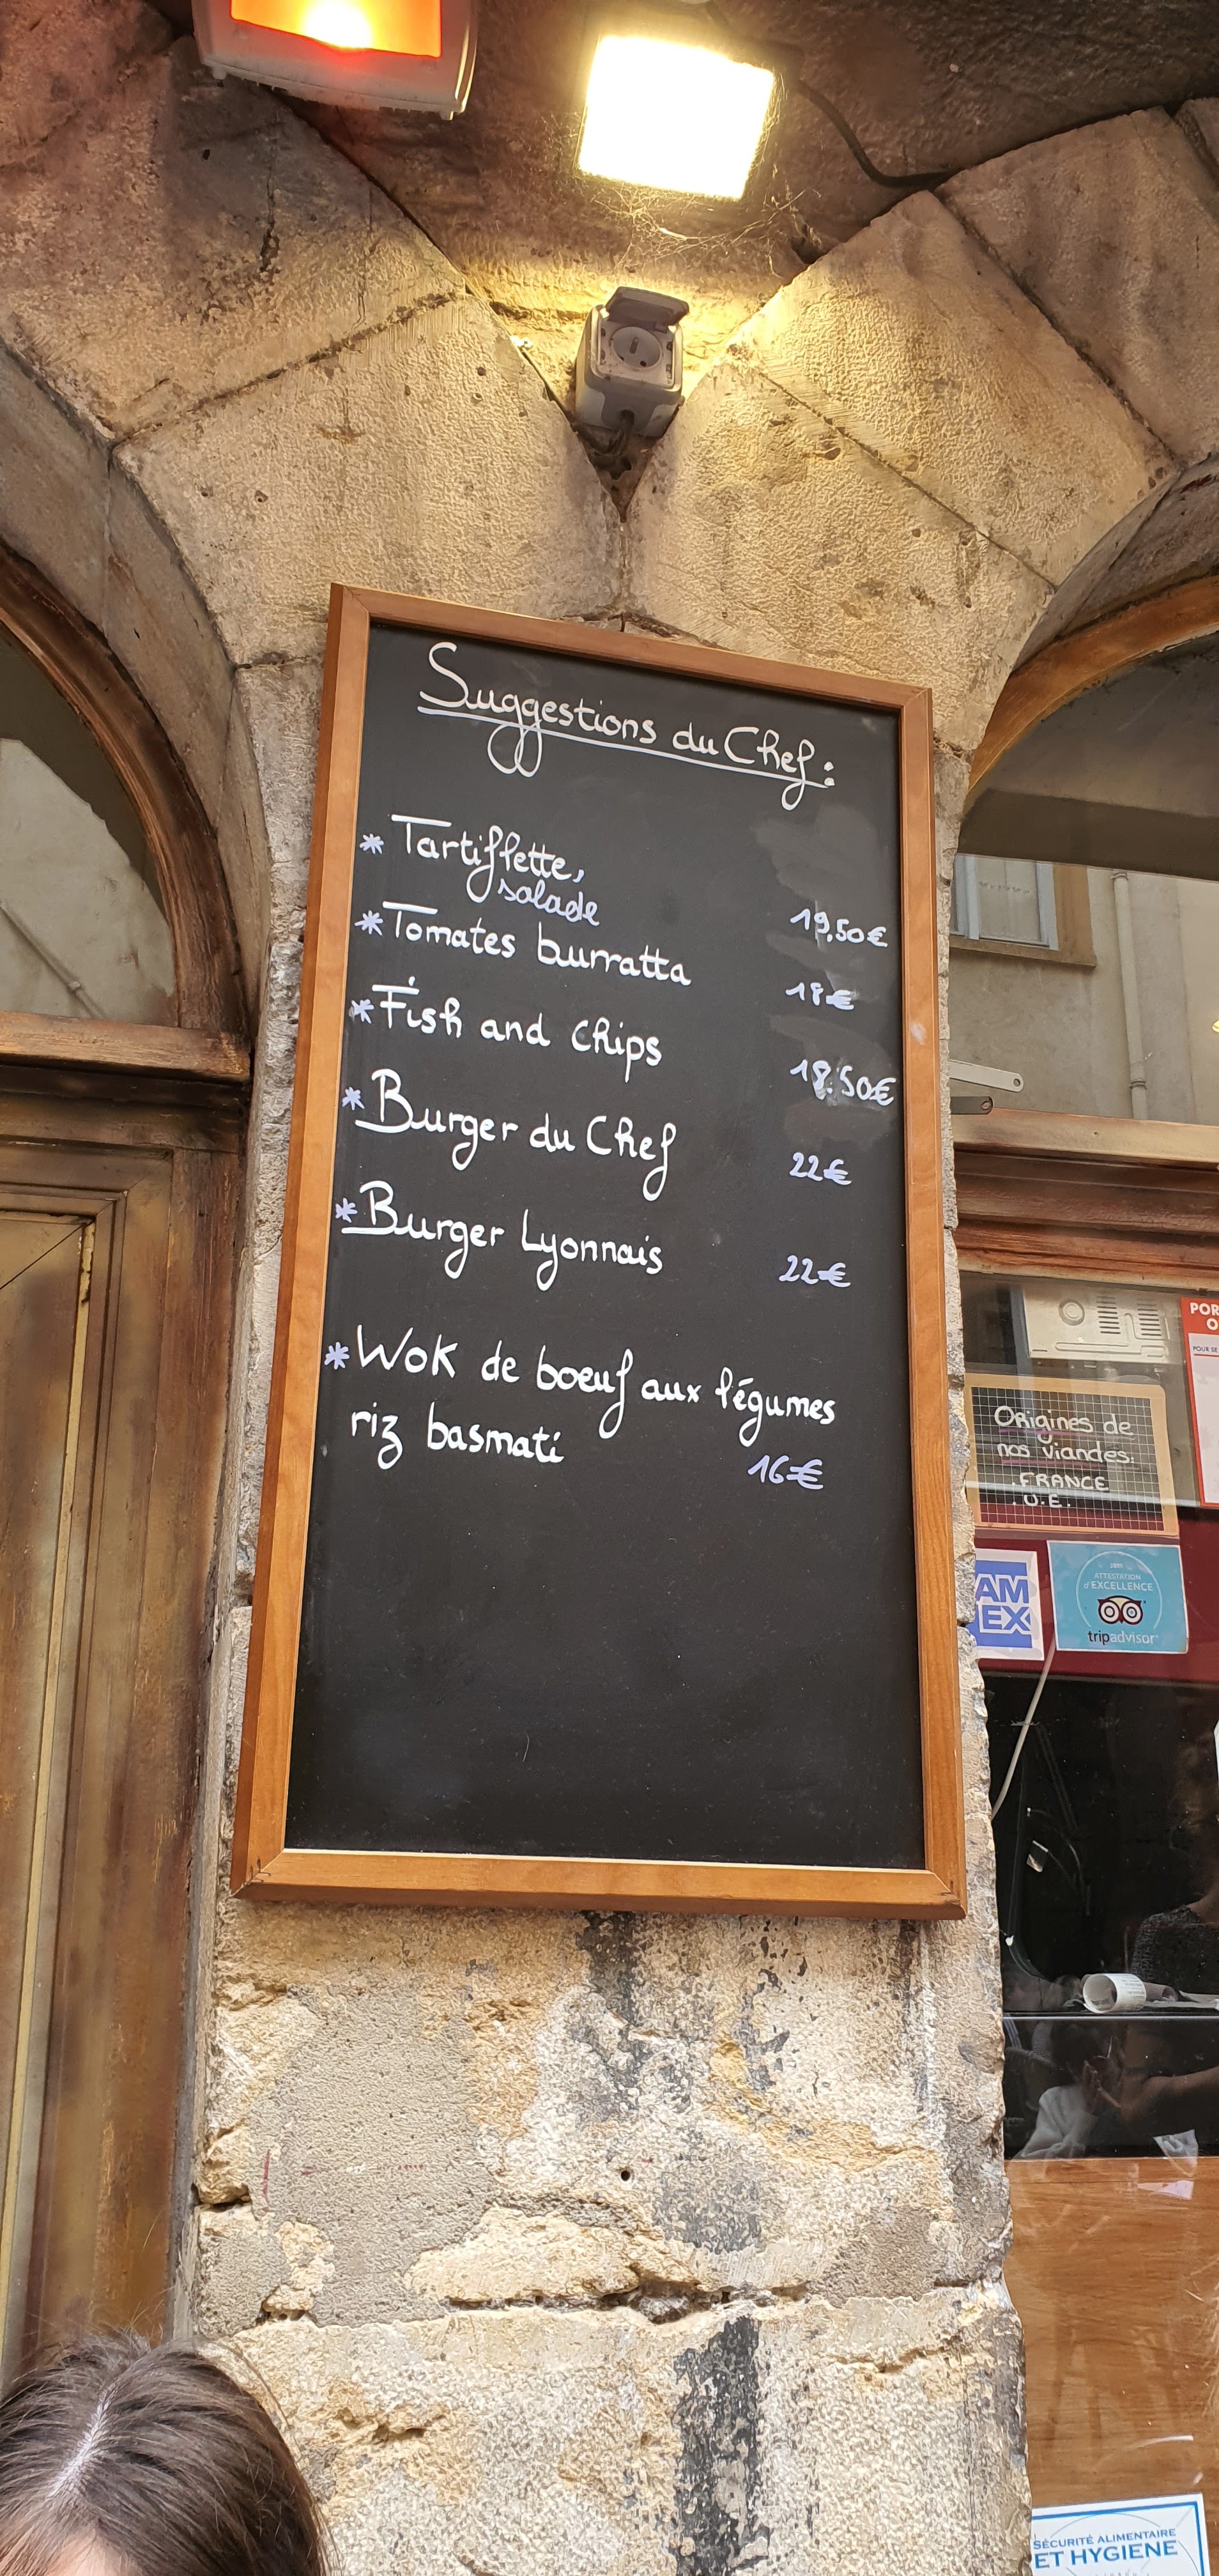 Suggestions du Chef :
* Tartiflette,
salade 19,50€
* Tomates burratta 18€
* Fish and chips 18.50€
* Burger du Chef 22€
* Burger Lyonnais 22€
* Wok de boeuf aux légumes
riz basmati 16€
POUR SE
Origines de
nos viandes:
. FRANCE
. U.E.
AM
EX
ATTESTATION
d'EXCELLENCE
tripadvisor
SÉCURITÉ ALIMENTAIRE
ET HYGIENE